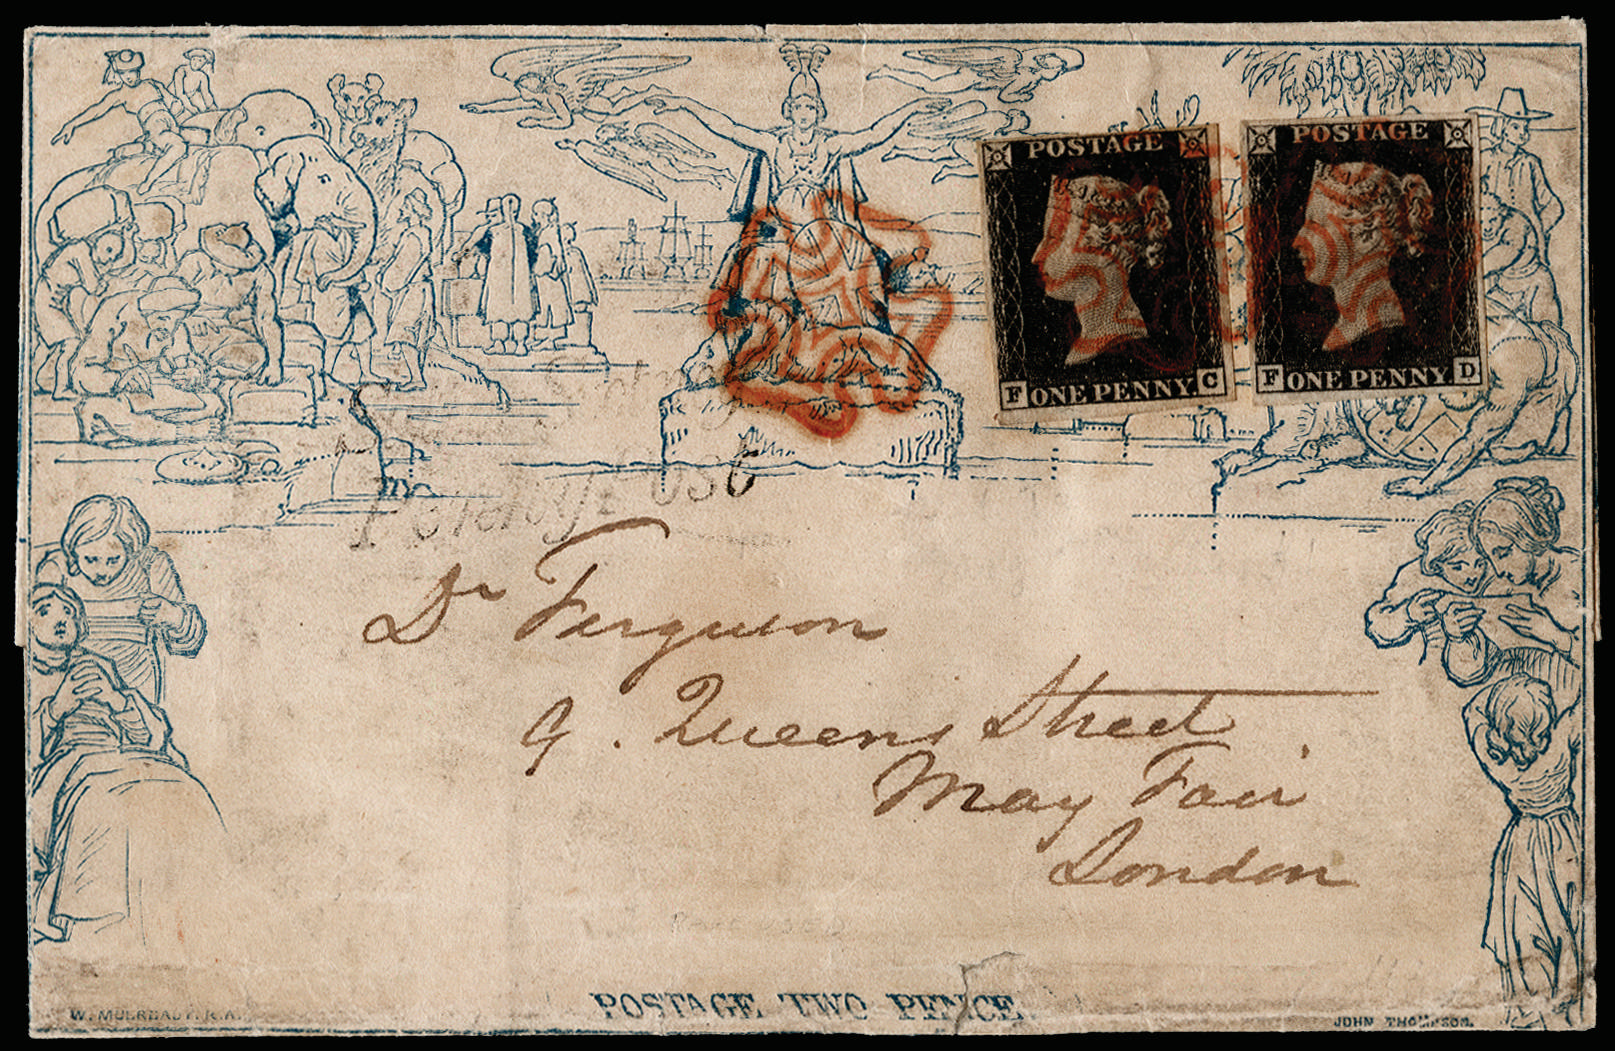 POSTAGE
F ONE PENNY. C
POSTAGE
F ONE PENNY. D
Penny Post
Dr Ferguson
9. Queens Street
May Fair
London
POSTAGE TWO PENCE.
W. MULREADY. R.A.
JOHN THOMPSON.